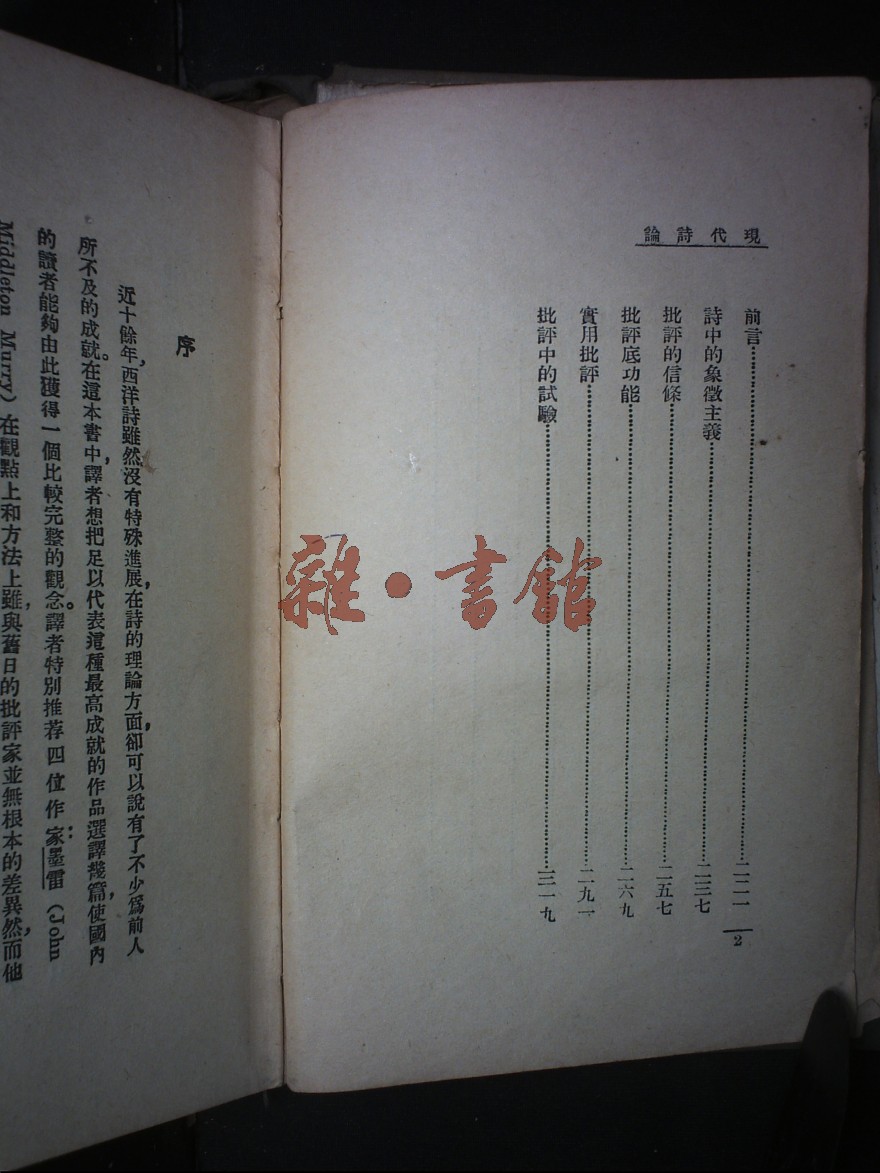 現代詩論
前言……二二一
詩中的象徵主義……二三七
批評的信條……二五七
批評底功能……二六九
實用批評……二九一
批評中的試驗……三一九
2
序
近十餘年，西洋詩雖然沒有特殊進展，在詩的理論方面，卻可以說有了不少爲前人
所不及的成就。在這本書中，譯者想把足以代表這種最高成就的作品選譯幾篇，使國內
的讀者能夠由此獲得一個比較完整的觀念。譯者特別推荐四位作家：墨雷（John
Middleton Murry）在觀點上和方法上雖與舊日的批評家並無根本的差異，然而他
雜·書館